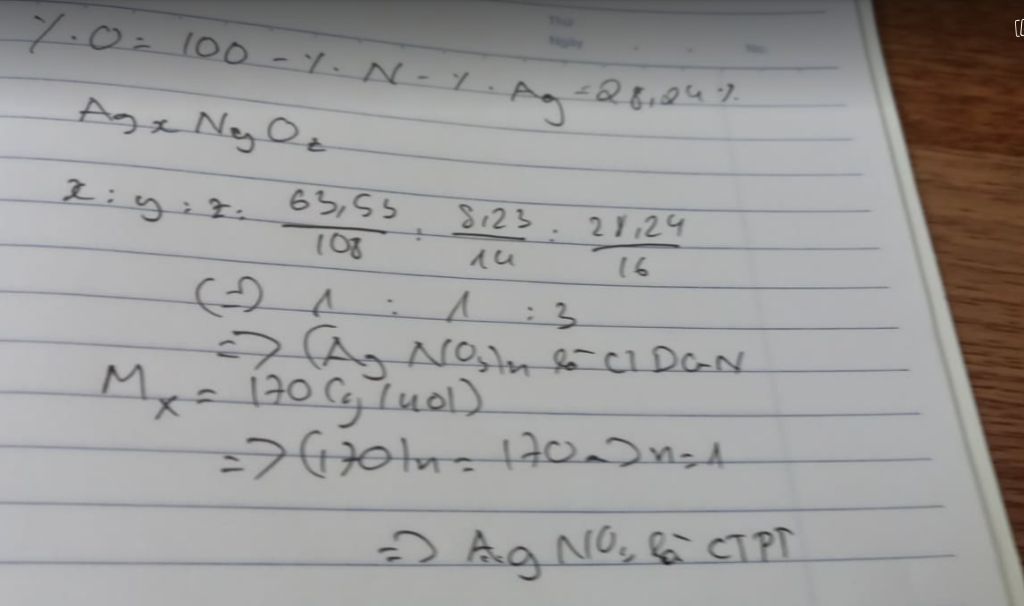 Thứ
Ngày No.
%.O = 100 - %.N - %.Ag = 28,24%.
AgxNyOz
x : y : z = 63,53/108 : 8,23/14 : 28,24/16
(=) 1 : 1 : 3
=> (AgNO3)n là CTDGN
Mx = 170 (g/mol)
=> (170)n = 170 => n = 1
=> AgNO3 là CTPT